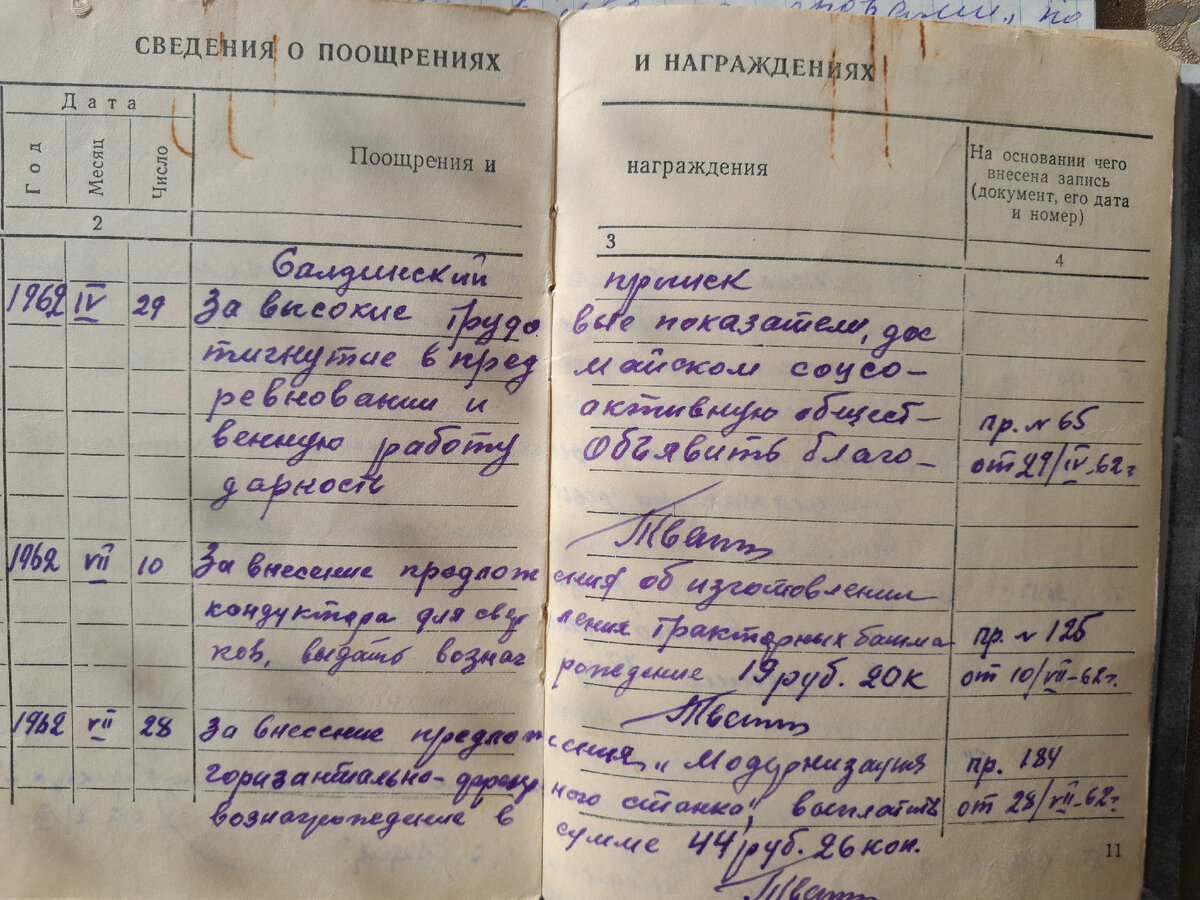 СВЕДЕНИЯ О ПООЩРЕНИЯХ И НАГРАЖДЕНИЯХ
Дата
Год Месяц Число
Поощрения и награждения
На основании чего
внесена запись
(документ, его дата
и номер)
2 3 4
Салдинский прииск
1962 IV 29 За высокие трудовые показатели, дос
тигнутие в пред майском соцсо-
ревновании и активную общест- пр. N 65
венную работу Объявить благо- от 29/IV-62г
дарность
1962 VII 10 За внесение предложения об изготовлении
кондуктора для сверления тракторных башма пр. N 125
ков, выдать вознаграждение 19 руб. 20 к от 10/VII-62г.
1962 VII 28 За внесение предложения „Модурнизация пр. 184
горизантиально-фрезерного станка", выплатить от 28/VII-62г
вознагрождение в сумме 44 руб. 26 коп.
11